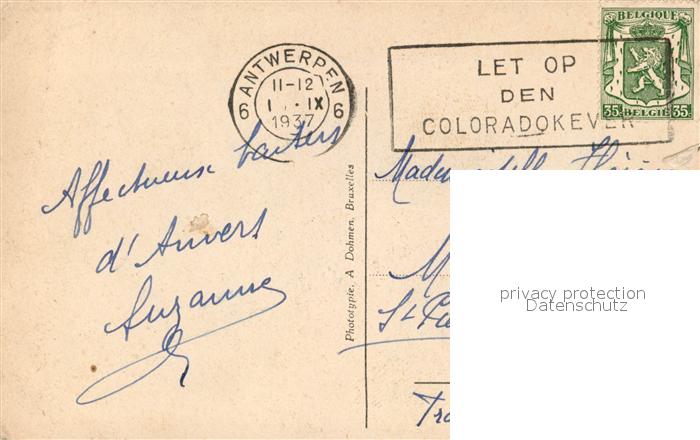 ANTWERPEN
11-12
IX
1937
6 6
LET OP
DEN
COLORADOKEVER
BELGIQUE
35c 35c
BELGIË
Affectueux baisers
d'Anvers
Suzanne
Phototypie. A Dohmen, Bruxelles
Mademoiselle
privacy protection
Datenschutz